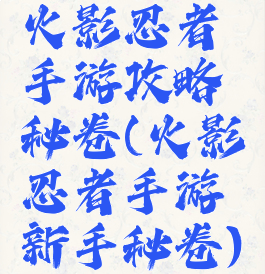 火影忍者
手游攻略
秘卷(火影
忍者手游
新手秘卷)